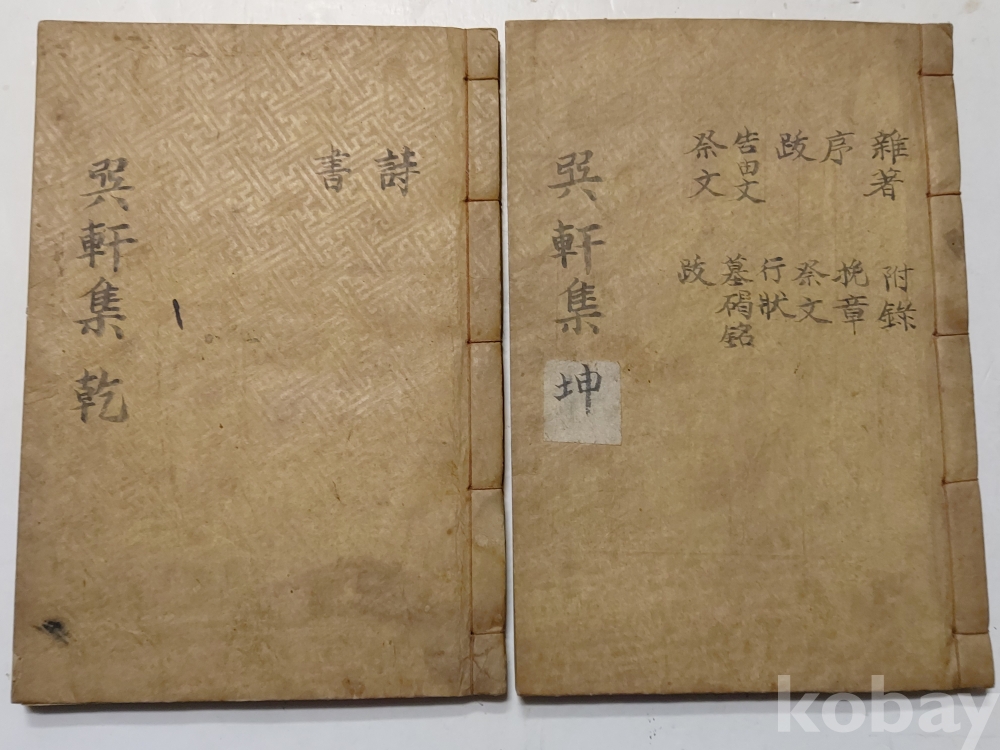 巽軒集 乾
詩
書
巽軒集 坤
雜著
序
跋
告由文
祭文
附錄
挽章
祭文
行狀
墓碣銘
跋
kobay